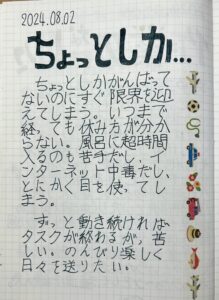 2024.08.02
ちょっとしか…
ちょっとしかがんばって
ないのにすぐ限界を迎
えてしまう。いつまで
経っても休み方が分か
らない。風呂に超時間
入るのも苦手だし、イ
ンターネット中毒だし、
とにかく目を使ってし
まう。
ずっと動き続ければ
タスクが終わるが、苦
しい。のんびり楽しく
日々を送りたい。